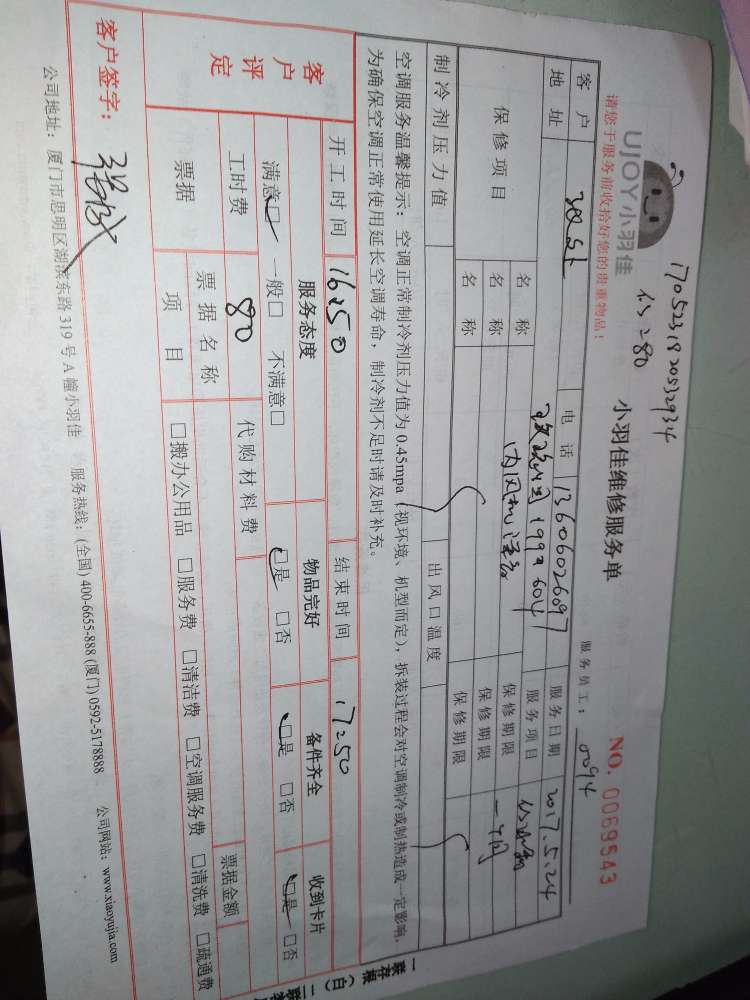 1705231820532934
UJOY小羽佳
280
小羽佳维修服务单
NO. 0069543
请您于服务前收拾好您的贵重物品！
服务员工： 0094
客户
电话 13606026097
服务日期 2017.5.24
地址
1992 604
服务项目
保修项目
名称 内风机清洗
保修期限
名称
保修期限 一个月
名称
保修期限
制冷剂压力值
出风口温度
空调服务温馨提示：空调正常制冷剂压力值为0.45mpa（视环境、机型而定），拆装过程会对空调制冷或制热造成一定影响，
为确保空调正常使用延长空调寿命，制冷剂不足时请及时补充。
开工时间 16:50 结束时间 17:50
客户评定
服务态度 物品完好 备件齐全 收到卡片
满意□ 一般□ 不满意□ □是 □否 □是 □否 □是 □否
工时费 80 代购材料费 票据金额
票据 票据名称项目 □搬办公用品 □服务费 □清洁费 □空调服务费 □清洗费 □疏通费
客户签字：
公司地址：厦门市思明区湖滨东路319号A幢小羽佳 服务热线：(全国) 400-6655-888 (厦门) 0592-5178888 公司网站：www.xiaoyujia.com
一联存根（白）二联